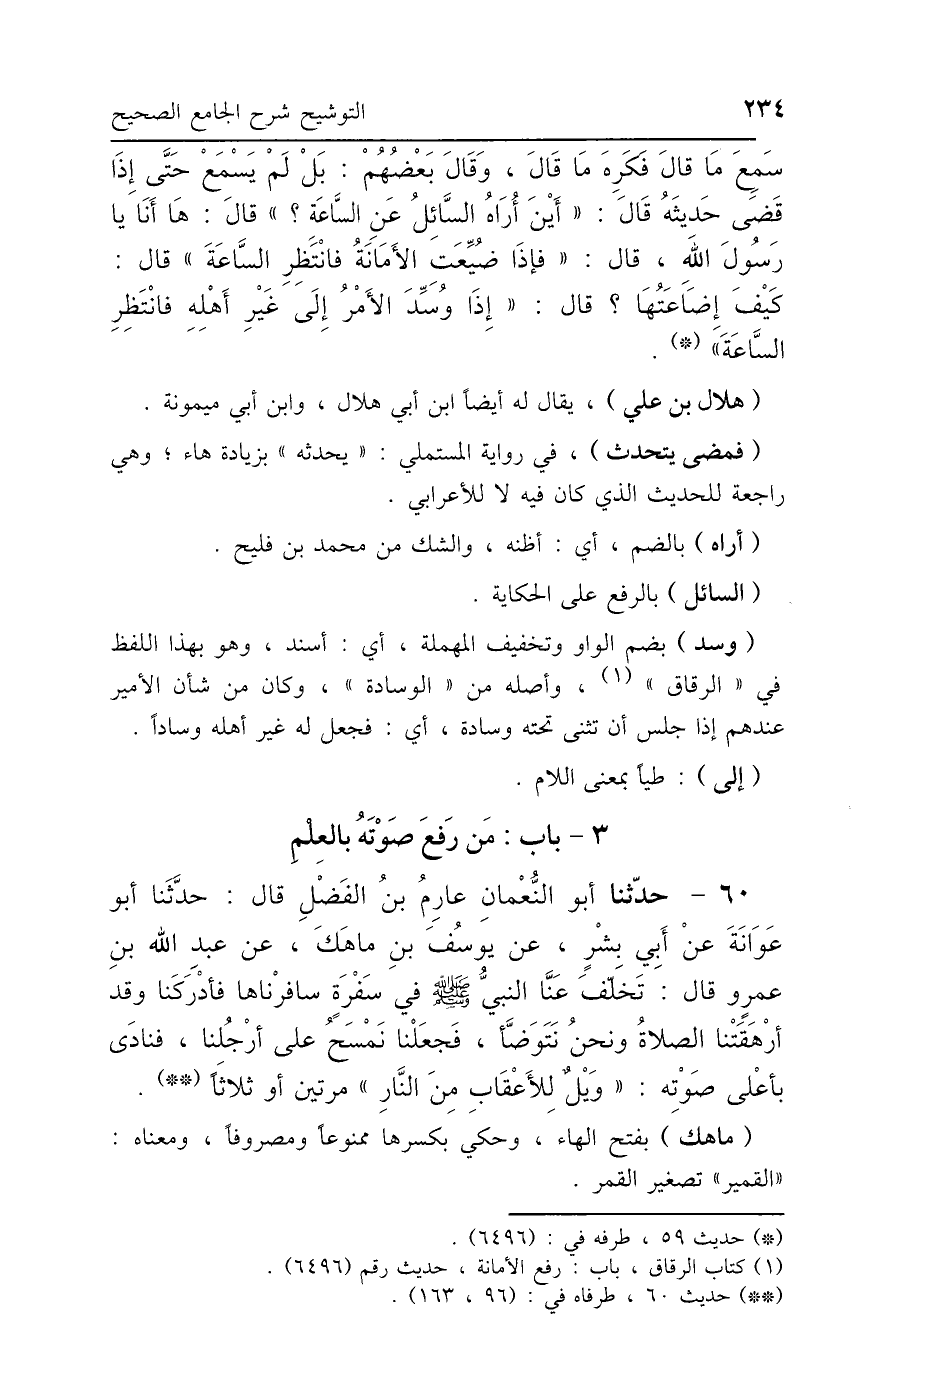 ٢٣٤ التوشيح شرح الجامع الصحيح
سَمِعَ مَا قالَ فَكَرِهَ مَا قَالَ ، وَقَالَ بَعْضُهُمْ : بَلْ لَمْ يَسْمَعْ حَتَّى إِذَا
قَضَى حَدِيثَهُ قَالَ : « أَيْنَ أُرَاهُ السَّائِلُ عَنِ السَّاعَةِ ؟ » قالَ : هَا أَنَا يا
رَسُولَ اللهِ ، قال : « فإذَا ضُيِّعَتِ الأَمَانَةُ فانْتَظِرِ السَّاعَةَ » قال :
كَيْفَ إِضَاعَتُهَا ؟ قال : « إذَا وُسِّدَ الأَمْرُ إلَى غَيْرِ أَهْلِهِ فانْتَظِرِ
السَّاعَةَ» (*) .
( هلال بن علي ) ، يقال له أيضاً ابن أبي هلال ، وابن أبي ميمونة .
( فمضى يتحدث ) ، في رواية المستملي : « يحدثه » بزيادة هاء ؛ وهي
راجعة للحديث الذي كان فيه لا للأعرابي .
( أراه ) بالضم ، أي : أظنه ، والشك من محمد بن فليح .
( السائل ) بالرفع على الحكاية .
( وسد ) بضم الواو وتخفيف المهملة ، أي : أسند ، وهو بهذا اللفظ
في « الرقاق » (١) ، وأصله من « الوسادة » ، وكان من شأن الأمير
عندهم إذا جلس أن تثنى تحته وسادة ، أي : فجعل له غير أهله وساداً .
( إلى ) : طياً بمعنى اللام .
٣ - باب : مَن رَفَعَ صَوْتَهُ بالعِلْمِ
٦٠ - حدّثنا أبو النُّعْمانِ عارِمُ بنُ الفَضْلِ قال : حدَّثَنا أبو
عَوَانَةَ عَنْ أَبي بِشْرٍ ، عن يوسُفَ بنِ ماهَكَ ، عن عبدِ الله بنِ
عمرٍو قال : تَخلّفَ عَنَّا النبيُّ ﷺ في سَفْرَةٍ سافرْناها فأدْرَكَنا وقد
أرْهَقَتْنا الصلاةُ ونحنُ نَتَوَضَّأ ، فَجعَلْنا نَمْسَحُ على أرْجُلنا ، فنادَى
بأعْلى صَوْتِه : « وَيْلٌ للأَعْقَابِ مِنَ النَّارِ » مرتين أو ثلاثاً (**) .
( ماهك ) بفتح الهاء ، وحكي بكسرها ممنوعاً ومصروفاً ، ومعناه :
«القمير» تصغير القمر .
(*) حديث ٥٩ ، طرفه في : (٦٤٩٦) .
(١) كتاب الرقاق ، باب : رفع الأمانة ، حديث رقم (٦٤٩٦) .
(**) حديث ٦٠ ، طرفاه في : (٩٦ ، ١٦٣) .